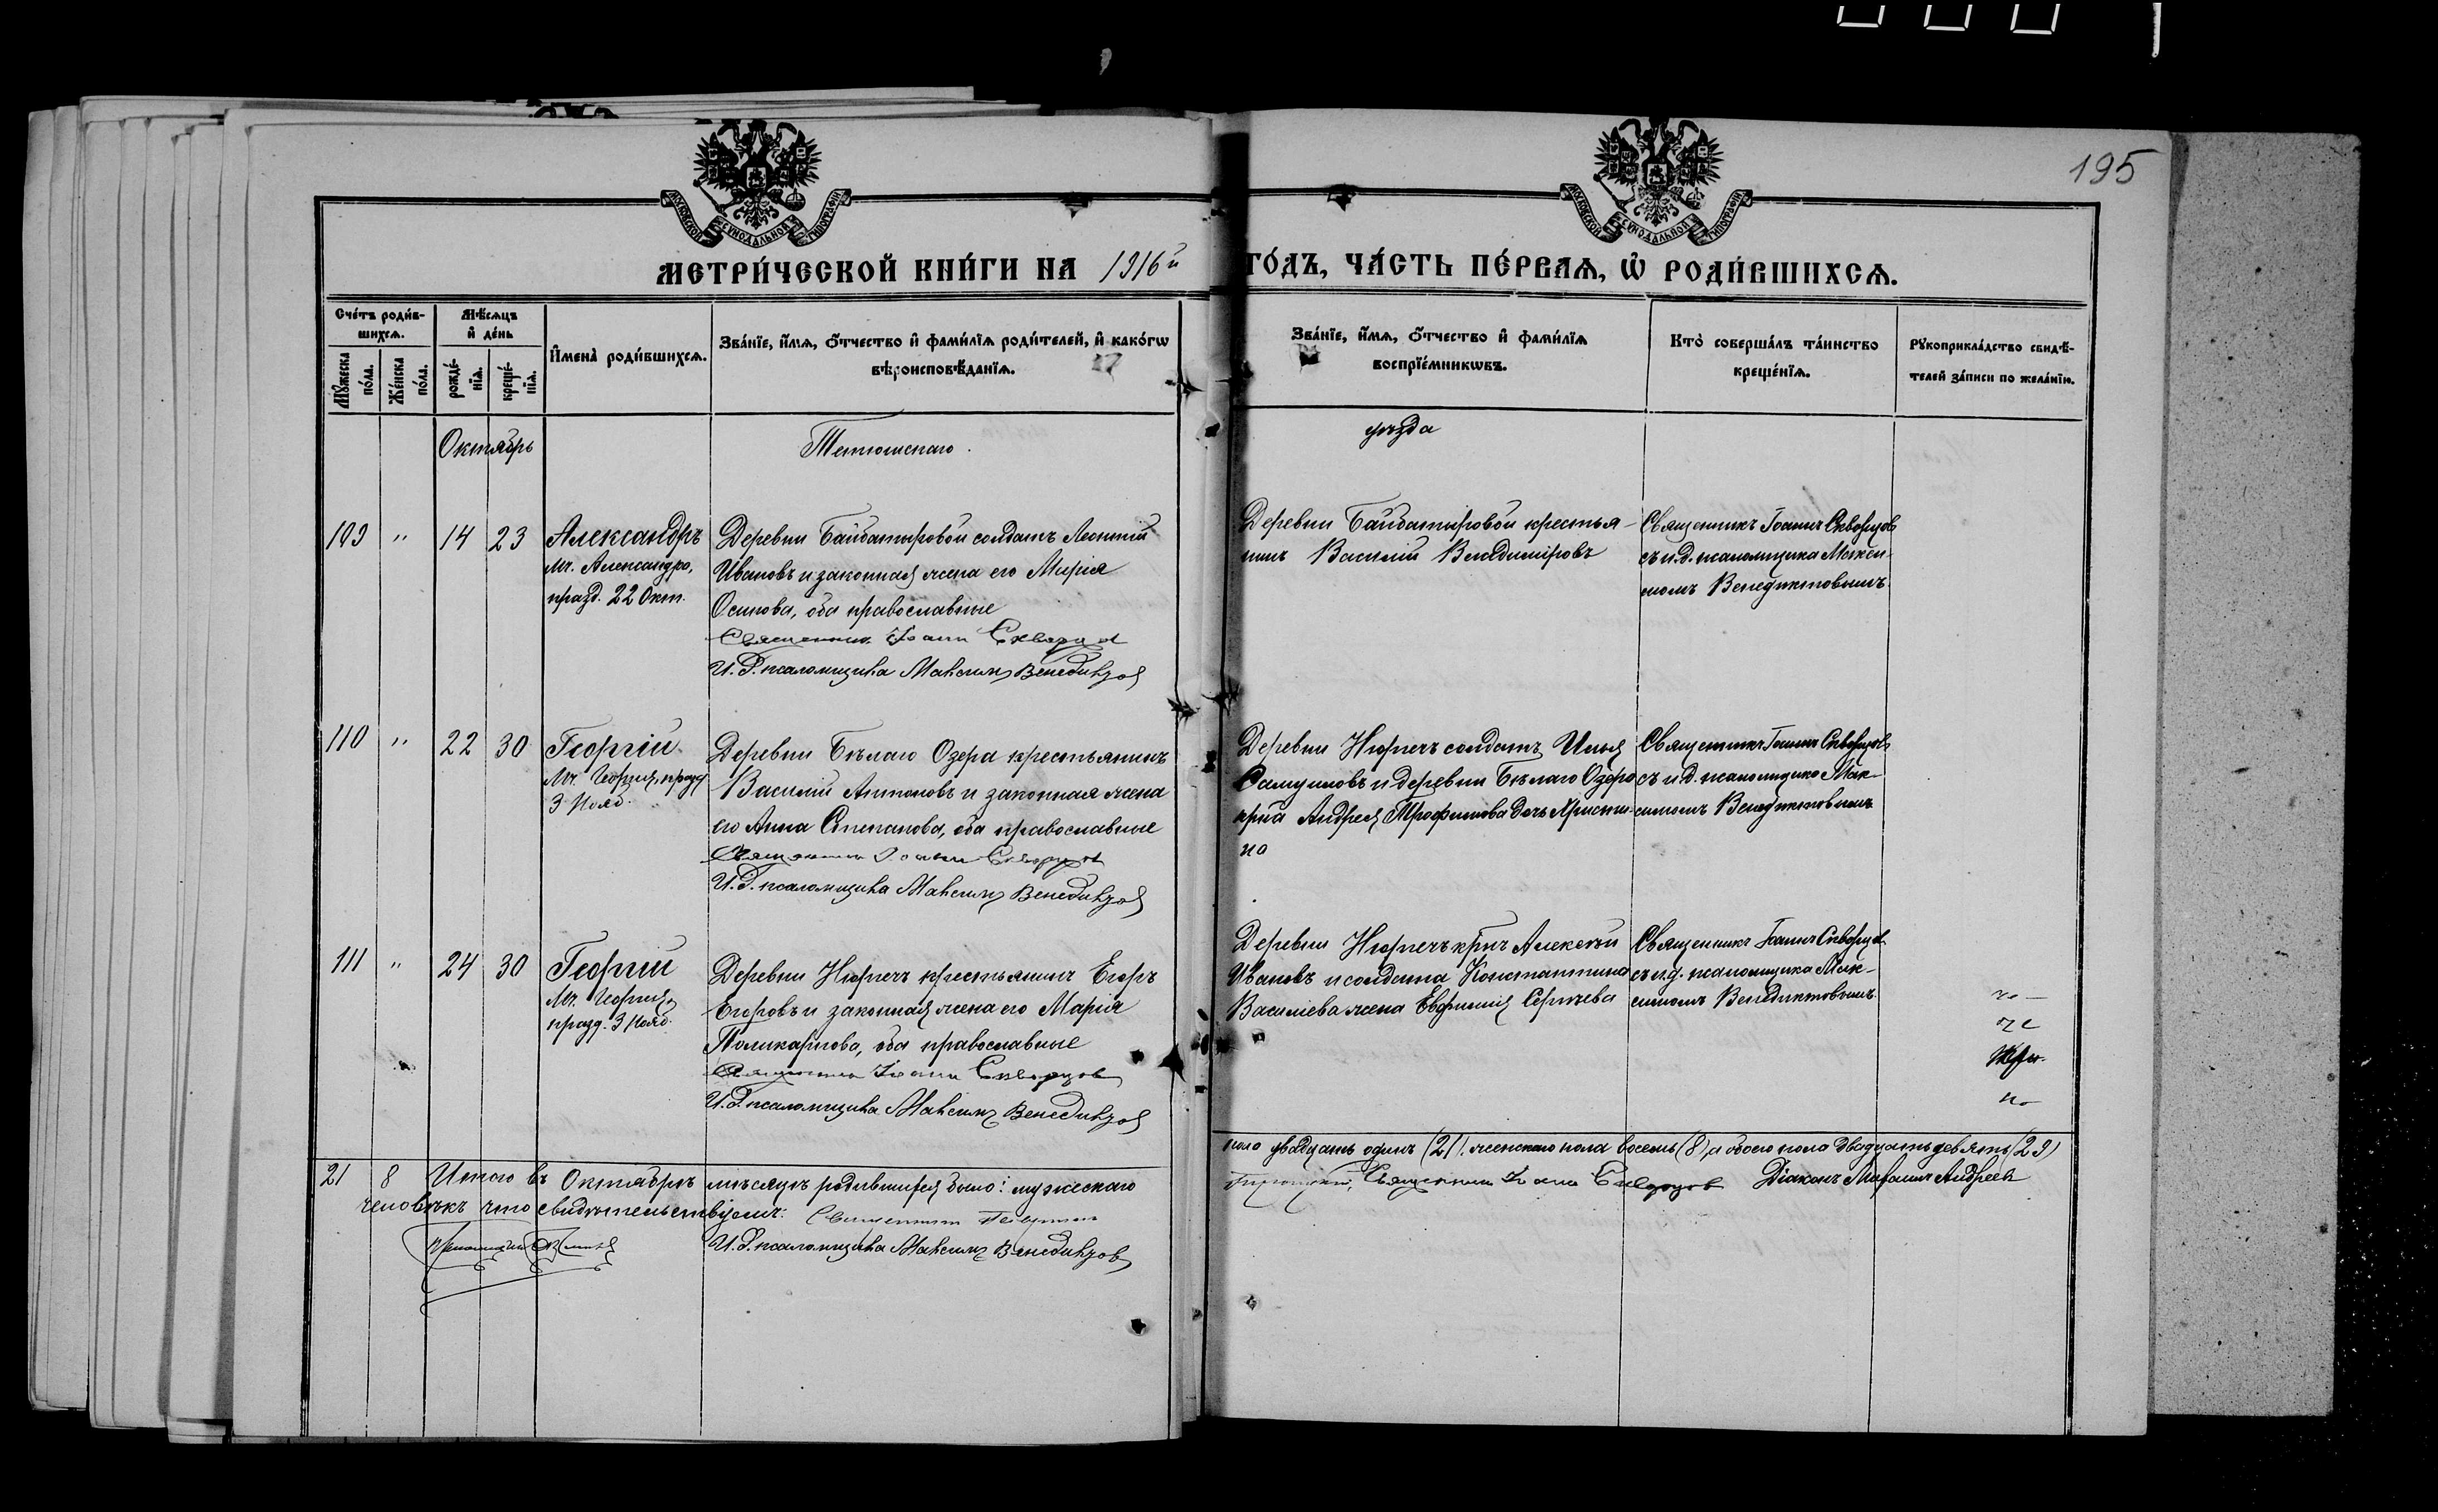 195
МЕТРИ́ЧЕСКОЙ КНИ́ГИ НА 1916й ГО́ДЪ, ЧА́СТЬ ПЕ́РВАѦ, Ѡ РОДИ́ВШИХСѦ.
Сче́тъ роди́в-
шихсѧ.
Мꙋжеска по́ла.
Же́нска по́ла.
Мѣ́сѧцъ
и҆ де́нь
рожде́-
нїѧ.
креще́-
нїѧ.
И҆мена̀ роди́вшихсѧ.
Зва́нїе, и҆́мѧ, ѻ҆́тчество и҆ фами́лїѧ роди́телей, и҆ како́гѡ
вѣроисповѣ́данїѧ.
Зва́нїе, и҆́мѧ, ѻ҆́тчество и҆ фами́лїѧ
воспрїе́мникѡвъ.
Кто̀ соверша́лъ та́инство
креще́нїѧ.
Рꙋкоприкла́дство свидѣ́-
телей за́писи по жела́нїю.
Октябрь
Тетюшскаго
уѣзда
109 " 14 23
Александръ
мч. Александра,
празд. 22 Окт.
Деревни Байбатыровой солдатъ Леонтій
Ивановъ и законная жена его Марія
Осипова, оба православные
Священник Іоанн Скворцов
И. д. псаломщика Максим Венедиктов
Деревни Байбатыровой крестья-
нинъ Василій Владиміровъ
Священникъ Іоаннъ Скворцовъ
съ и.д. псаломщика Макси-
момъ Венедиктовымъ.
110 " 22 30
Георгій
Мч. Георгія, празд
3 Нояб.
Деревни Бѣлаго Озера крестьянинъ
Василій Антоновъ и законная жена
его Анна Степанова, оба православные
Священник Іоанн Скворцов
И. д. псаломщика Максим Венедиктов
Деревни Нюргечъ солдатъ Илья
Самуиловъ и деревни Бѣлаго Озера
крна Андрея Трофимова дочь Христи-
на
Священникъ Іоаннъ Скворцовъ
съ и.д. псаломщика Мак-
симомъ Венедиктовымъ
111 " 24 30
Георгій
Мч. Георгія,
празд. 3 Нояб.
Деревни Нюргечъ крестьянинъ Егоръ
Егоровъ и законная жена его Марія
Поликарпова, оба православные
Священник Іоанн Скворцов
И. д. псаломщика Максим Венедиктов
Деревни Нюргечъ крнъ Алексѣй
Ивановъ и солдата Константина
Василіева жена Евфимія Сергѣева
Священникъ Іоаннъ Скворцов
съ и.д. псаломщика Мак-
симомъ Венедиктовымъ.
21 8 Итого въ Октябрѣ мѣсяцѣ родившихся было: мужескаго
пола двадцать одинъ (21), женскаго пола восемь (8), а обоего пола двадцать девять (29)
человѣкъ что свидѣтельствуемъ: Священник
Священник Іоанн Скворцов Діаконъ Андреевъ
И. д. псаломщика Максим Венедиктов